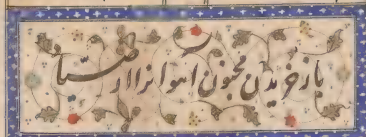 باز خریدن مجنون آهوانرا از صیاد